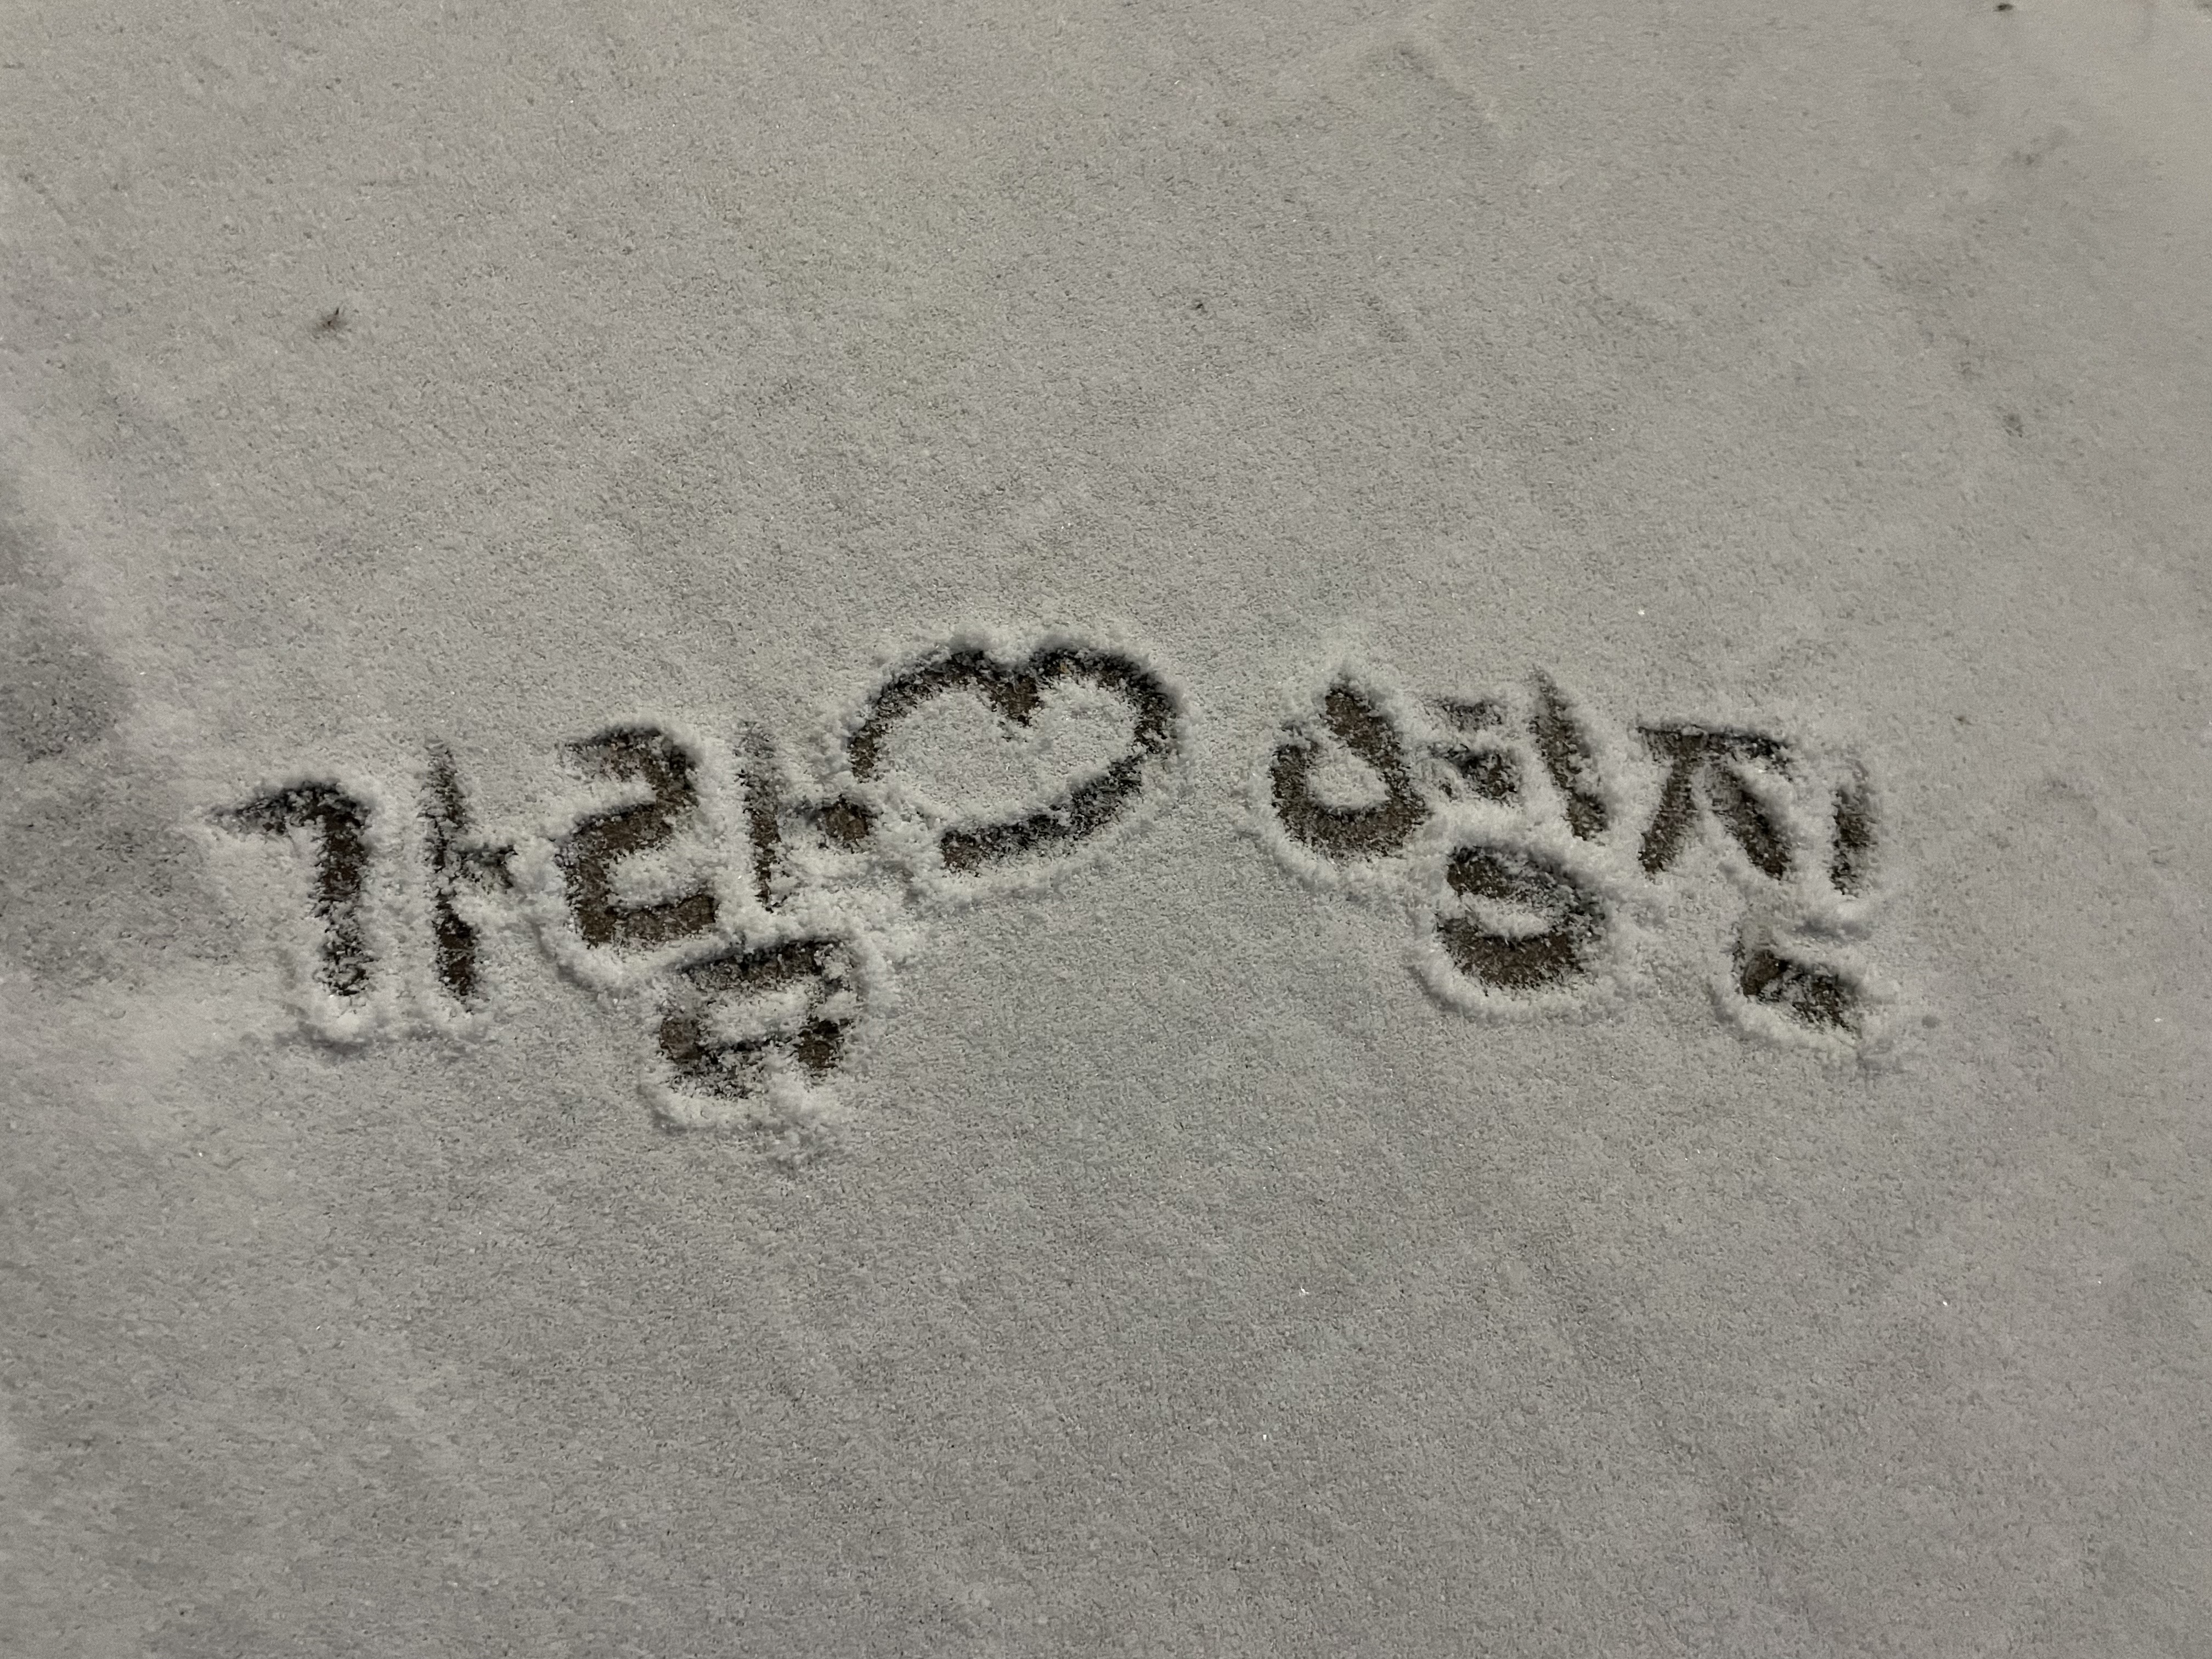 가람♡영진